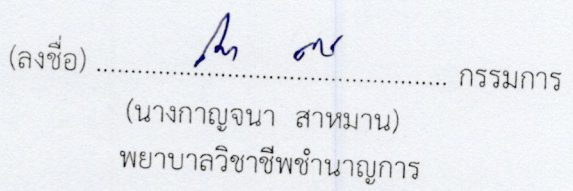 (ลงชื่อ) ................................................ กรรมการ
(นางกาญจนา สาหมาน)
พยาบาลวิชาชีพชำนาญการ